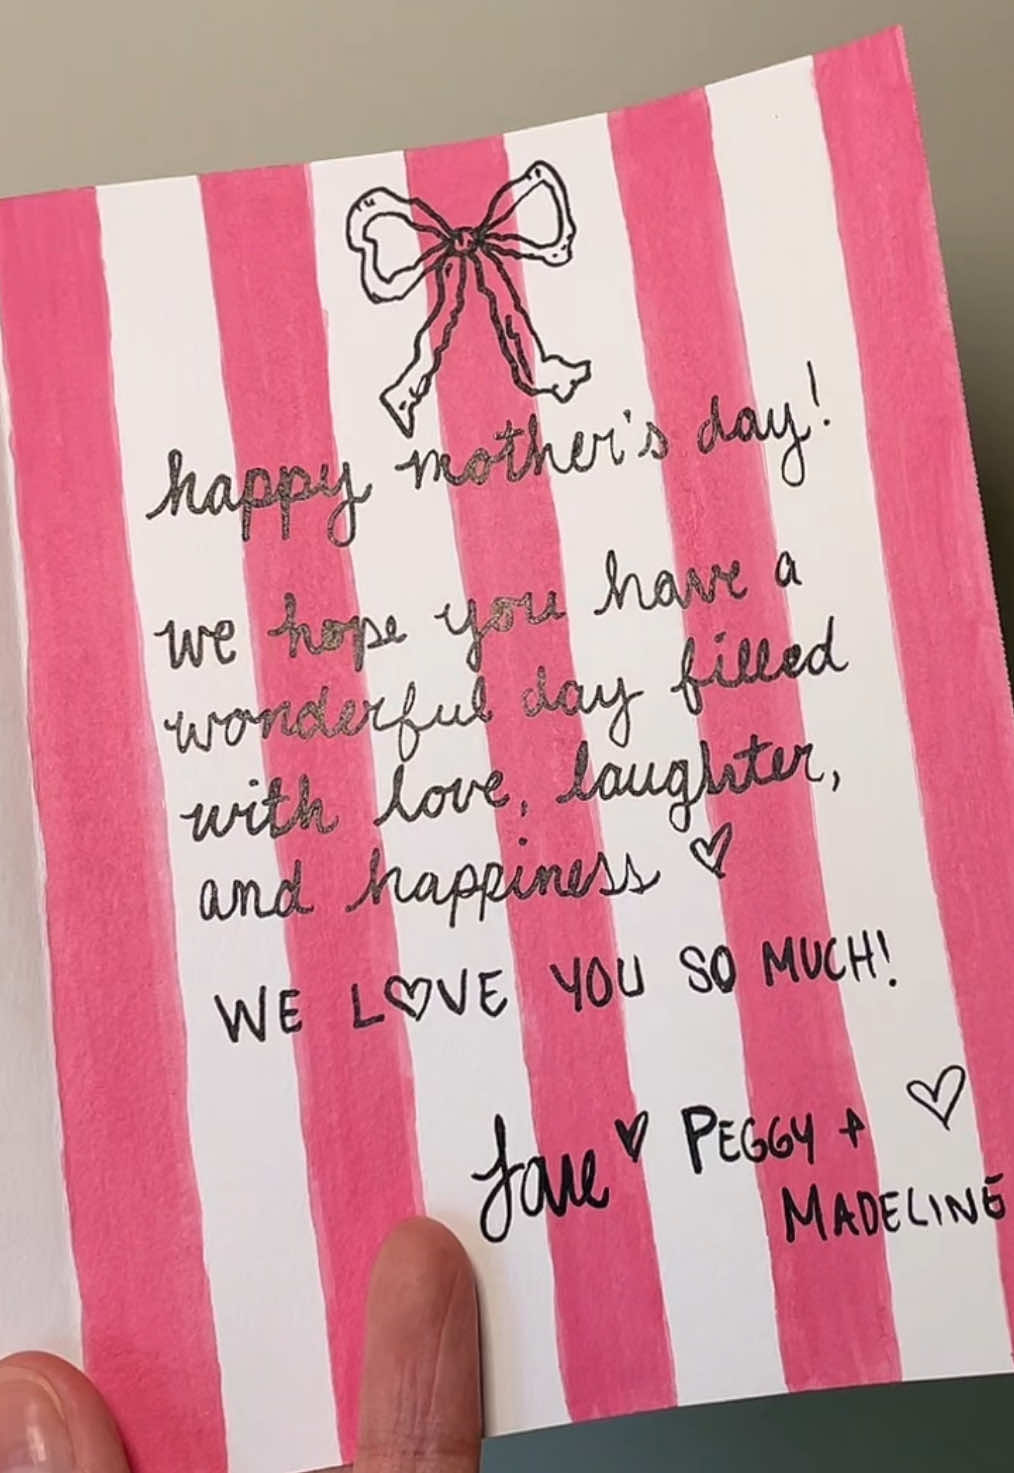 happy mother's day!
we hope you have a
wonderful day filled
with love, laughter,
and happiness ♡
WE L♡VE YOU SO MUCH!
Love ♥ PEGGY + ♡
MADELINE